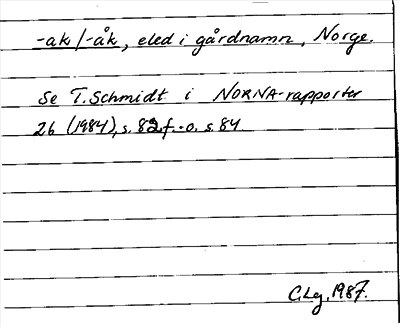 -ak/-åk, eled i gårdnamn, Norge.
Se T. Schmidt i NORNA-rapporter
26 (1984), s. 82f. o. s. 84
C.Lg, 1987.